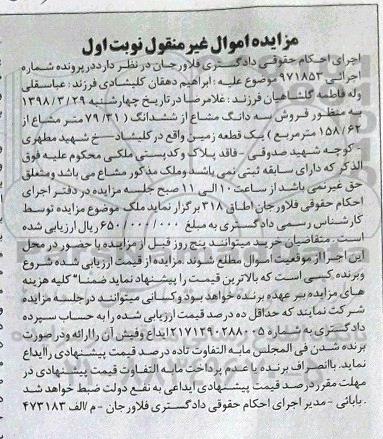 مزایده اموال غیر منقول نوبت اول
اجرای احکام حقوقی دادگستری فلاورجان در نظر دارد در پرونده شماره
اجرائی ۹۷۱۸۵۳ موضوع علیه : ابراهیم دهقان کلیشادی فرزند : عباسقلی
وله فاطمه گلشاهیان فرزند : غلامرضا در تاریخ چهارشنبه ۱۳۹۸/۳/۲۹
به منظور فروش سه دانگ مشاع از ششدانگ ( ۷۹/۳۱ متر مشاع از
۱۵۸/۶۲ مترمربع ) یک قطعه زمین واقع در کلیشادخ شهید مطهری
- کوچه شهید صدوقی - فاقد پلاک و کدپستی ملکی محکوم علیه فوق
الذکر که دارای سابقه ثبتی نمی باشد وملک مذکور مشاع می باشد ومتعلق
حق غیر نمی باشد از ساعت ۱۰ الی ۱۱ صبح جلسه مزایده در دفتر اجرای
احکام حقوقی فلاورجان اطاق ۳۱۸ برگزار نماید ملک موضوع مزایده توسط
کارشناس رسمی دادگستری به مبلغ ۶۵۰/۰۰۰/۰۰۰ ریال ارزیابی شده
است . متقاضیان خرید میتوانند پنج روز قبل از مزایده با حضور در محل
این اجرا از موقعیت اموال مطلع شوند. مزایده از قیمت ارزیابی شده شروع
وبرنده کسی است که بالاترین قیمت را پیشنهاد نماید ضمنا" کلیه هزینه
های مزایده بر عهده برنده خواهد بود وکسانی میتوانند در جلسه مزایده
شرکت نمایند که حداقل ده درصد قیمت ارزیابی شده را به حساب سپرده
دادگستری به شماره ۲۱۷۱۲۹۰۲۸۸۰۰۵ ایداع وفیش آن را ارائه ودرصورت
برنده شدن فی المجلس مابه التفاوت تاده درصد قیمت پیشنهادی را ایداع
نماید. با انصراف برنده یا عدم پرداخت مابه التفاوت قیمت پیشنهادی در
مهلت مقرر ده درصد قیمت پیشنهادی ایداعی به نفع دولت ضبط خواهد شد
. بابائی - مدیر اجرای احکام حقوقی دادگستری فلاورجان - م/الف ۴۷۳۱۸۳